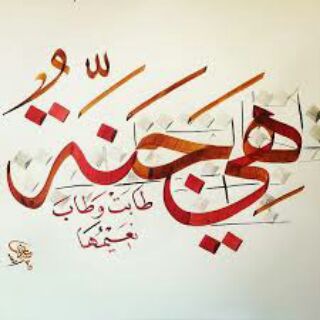 هِيَ جَنَّةٌ
طَابَتْ وَطَابَ
نَعِيْمُهَا